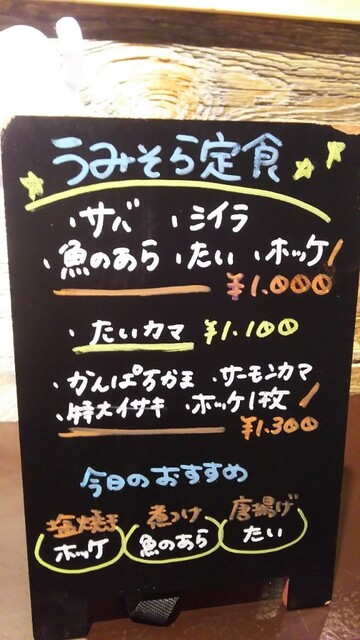 うみそら定食
・サバ ・シイラ
・魚のあら ・たい ・ホッケ
¥1.000
・たいカマ ¥1.100
・かんぱちかま ・サーモンカマ
・特大イサキ ・ホッケ1枚
¥1.300
今日のおすすめ
塩焼き 煮つけ 唐揚げ
ホッケ 魚のあら たい